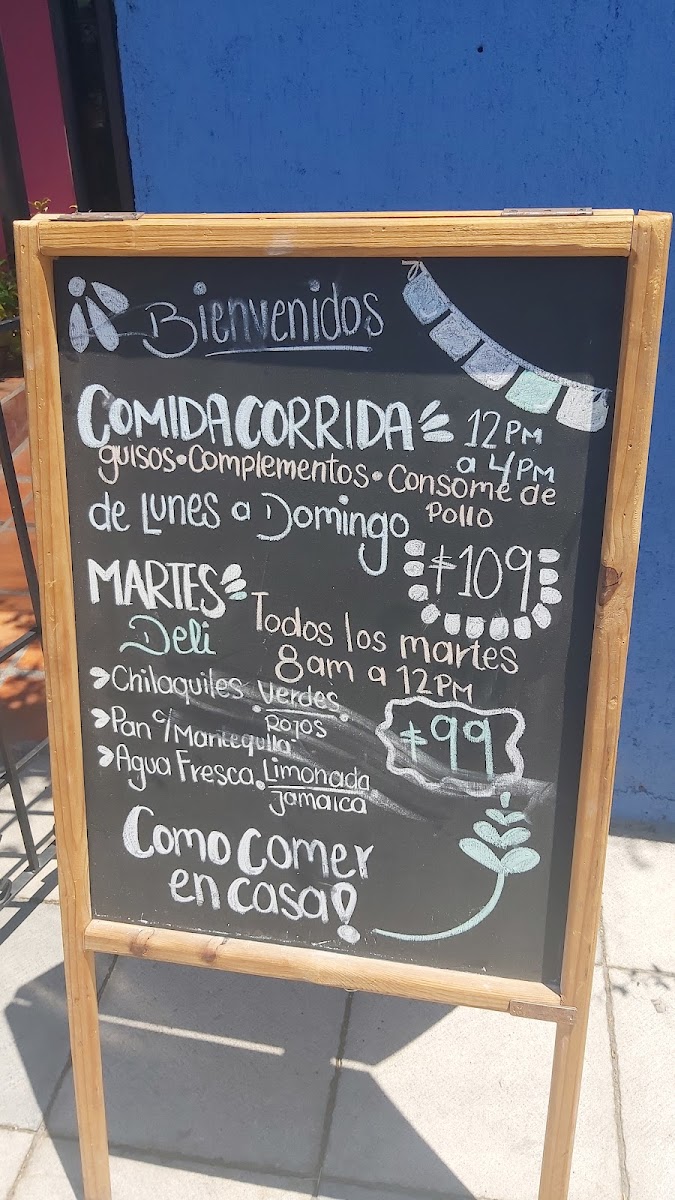 Bienvenidos
COMIDA CORRIDA 12PM
a 4PM
guisos • Complementos • Consome de
Pollo
de Lunes a Domingo
$109
MARTES
Deli
Todos los martes
8am a 12PM
Chilaquiles • Verdes
• Rojos
Pan c/ Mantequilla
$99
Agua Fresca • Limonada
Jamaica
Como Comer
en casa!